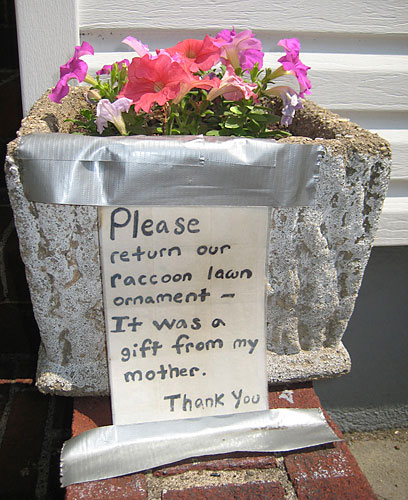 Please
return our
raccoon lawn
ornament –
It was a
gift from my
mother.
Thank You